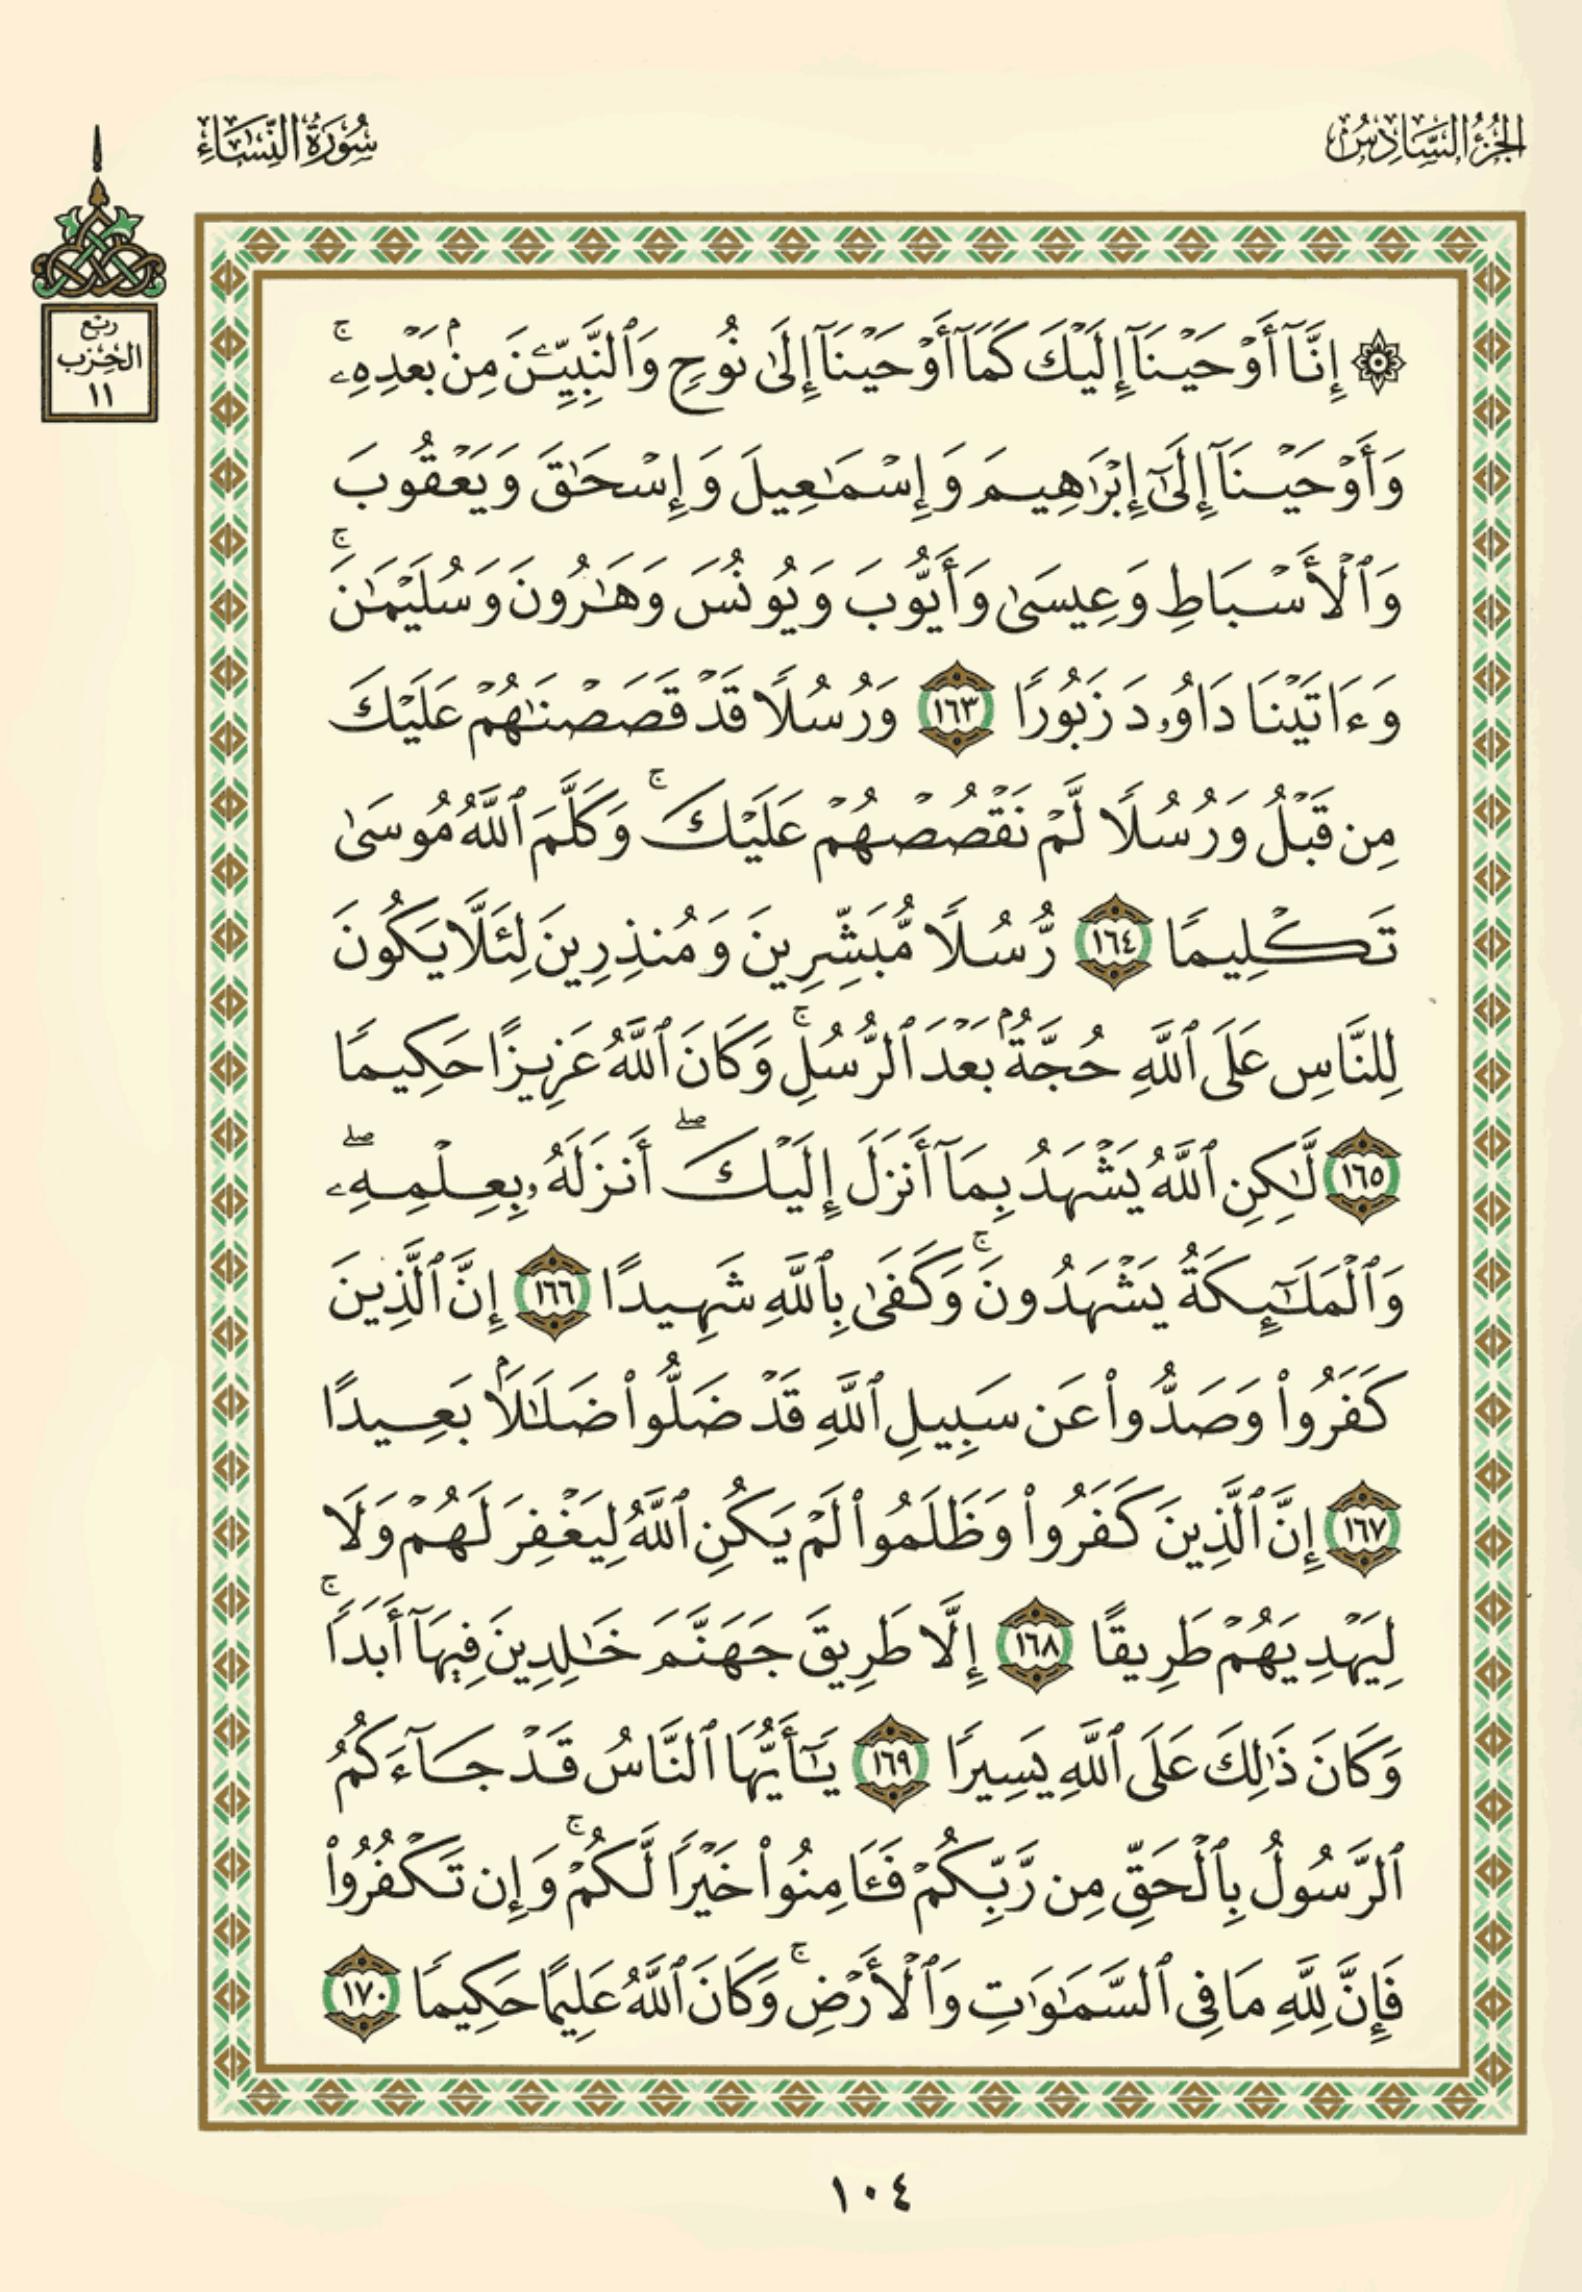 الجزء السادس
سورة النساء
ربع
الحزب
١١
۞ إِنَّآ أَوْحَيْنَآ إِلَيْكَ كَمَآ أَوْحَيْنَآ إِلَىٰ نُوحٍ وَٱلنَّبِيِّـۧنَ مِنۢ بَعْدِهِۦ ۚ
وَأَوْحَيْنَآ إِلَىٰٓ إِبْرَٰهِيمَ وَإِسْمَـٰعِيلَ وَإِسْحَـٰقَ وَيَعْقُوبَ
وَٱلْأَسْبَاطِ وَعِيسَىٰ وَأَيُّوبَ وَيُونُسَ وَهَـٰرُونَ وَسُلَيْمَـٰنَ ۚ
وَءَاتَيْنَا دَاوُۥدَ زَبُورًا ١٦٣ وَرُسُلًا قَدْ قَصَصْنَـٰهُمْ عَلَيْكَ
مِن قَبْلُ وَرُسُلًا لَّمْ نَقْصُصْهُمْ عَلَيْكَ ۚ وَكَلَّمَ ٱللَّهُ مُوسَىٰ
تَكْلِيمًا ١٦٤ رُّسُلًا مُّبَشِّرِينَ وَمُنذِرِينَ لِئَلَّا يَكُونَ
لِلنَّاسِ عَلَى ٱللَّهِ حُجَّةٌۢ بَعْدَ ٱلرُّسُلِ ۚ وَكَانَ ٱللَّهُ عَزِيزًا حَكِيمًا
١٦٥ لَّـٰكِنِ ٱللَّهُ يَشْهَدُ بِمَآ أَنزَلَ إِلَيْكَ ۖ أَنزَلَهُۥ بِعِلْمِهِۦ ۖ
وَٱلْمَلَـٰٓئِكَةُ يَشْهَدُونَ ۚ وَكَفَىٰ بِٱللَّهِ شَهِيدًا ١٦٦ إِنَّ ٱلَّذِينَ
كَفَرُوا۟ وَصَدُّوا۟ عَن سَبِيلِ ٱللَّهِ قَدْ ضَلُّوا۟ ضَلَـٰلًۢا بَعِيدًا
١٦٧ إِنَّ ٱلَّذِينَ كَفَرُوا۟ وَظَلَمُوا۟ لَمْ يَكُنِ ٱللَّهُ لِيَغْفِرَ لَهُمْ وَلَا
لِيَهْدِيَهُمْ طَرِيقًا ١٦٨ إِلَّا طَرِيقَ جَهَنَّمَ خَـٰلِدِينَ فِيهَآ أَبَدًا ۚ
وَكَانَ ذَٰلِكَ عَلَى ٱللَّهِ يَسِيرًا ١٦٩ يَـٰٓأَيُّهَا ٱلنَّاسُ قَدْ جَآءَكُمُ
ٱلرَّسُولُ بِٱلْحَقِّ مِن رَّبِّكُمْ فَـَٔامِنُوا۟ خَيْرًا لَّكُمْ ۚ وَإِن تَكْفُرُوا۟
فَإِنَّ لِلَّهِ مَا فِى ٱلسَّمَـٰوَٰتِ وَٱلْأَرْضِ ۚ وَكَانَ ٱللَّهُ عَلِيمًا حَكِيمًا ١٧٠
١٠٤